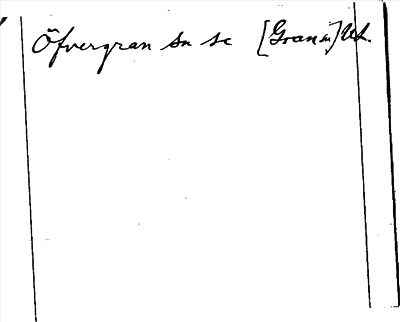 Öfvergran sn se [Gran sn] Upl.